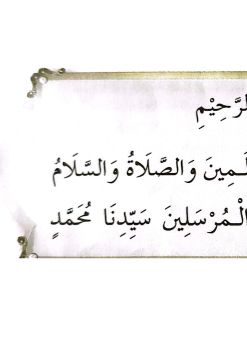 لرَّحِيْمِ
لَمِينَ وَالصَّلَاةُ وَالسَّلَامُ
الْمُرْسَلِينَ سَيِّدِنَا مُحَمَّدٍ